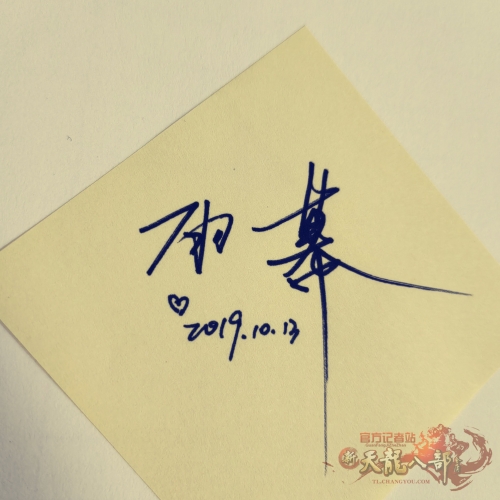 雨幕
♡
2019.10.13
官方记者站
新天龙八部
TL.CHANGYOU.COM